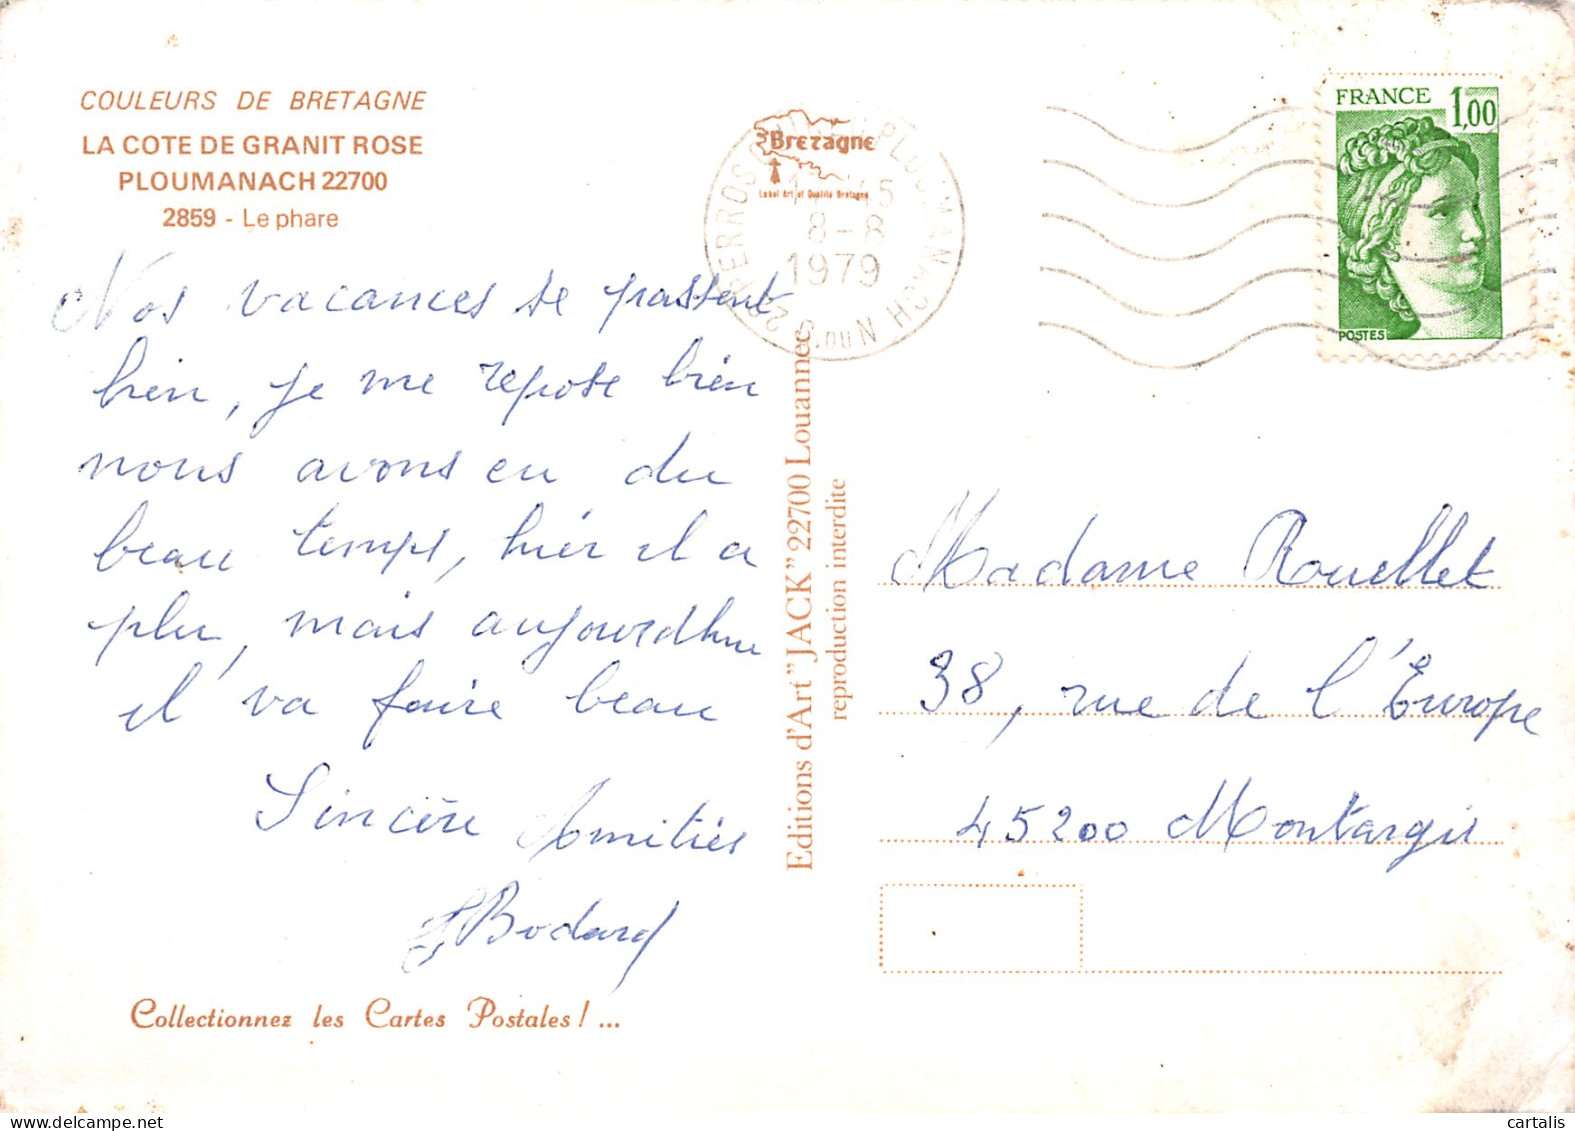 COULEURS DE BRETAGNE
LA COTE DE GRANIT ROSE
PLOUMANACH 22700
2859 - Le phare
Nos vacances se passent
bien, je me repose bien
nous avons eu du
beau temps, hier il a
plu, mais aujourd'hui
il va faire beau
Sincère Amitiés
Bodard
Collectionnez les Cartes Postales ! ...
Bretagne
Label Art et Qualité Bretagne
PLOUMANACH
8-8
1979
C. DU N
Editions d'Art "JACK" 22700 Louannec
reproduction interdite
FRANCE 1,00
POSTES
Madame Rouellet
38, rue de l'Europe
45200 Montargis
cartalis